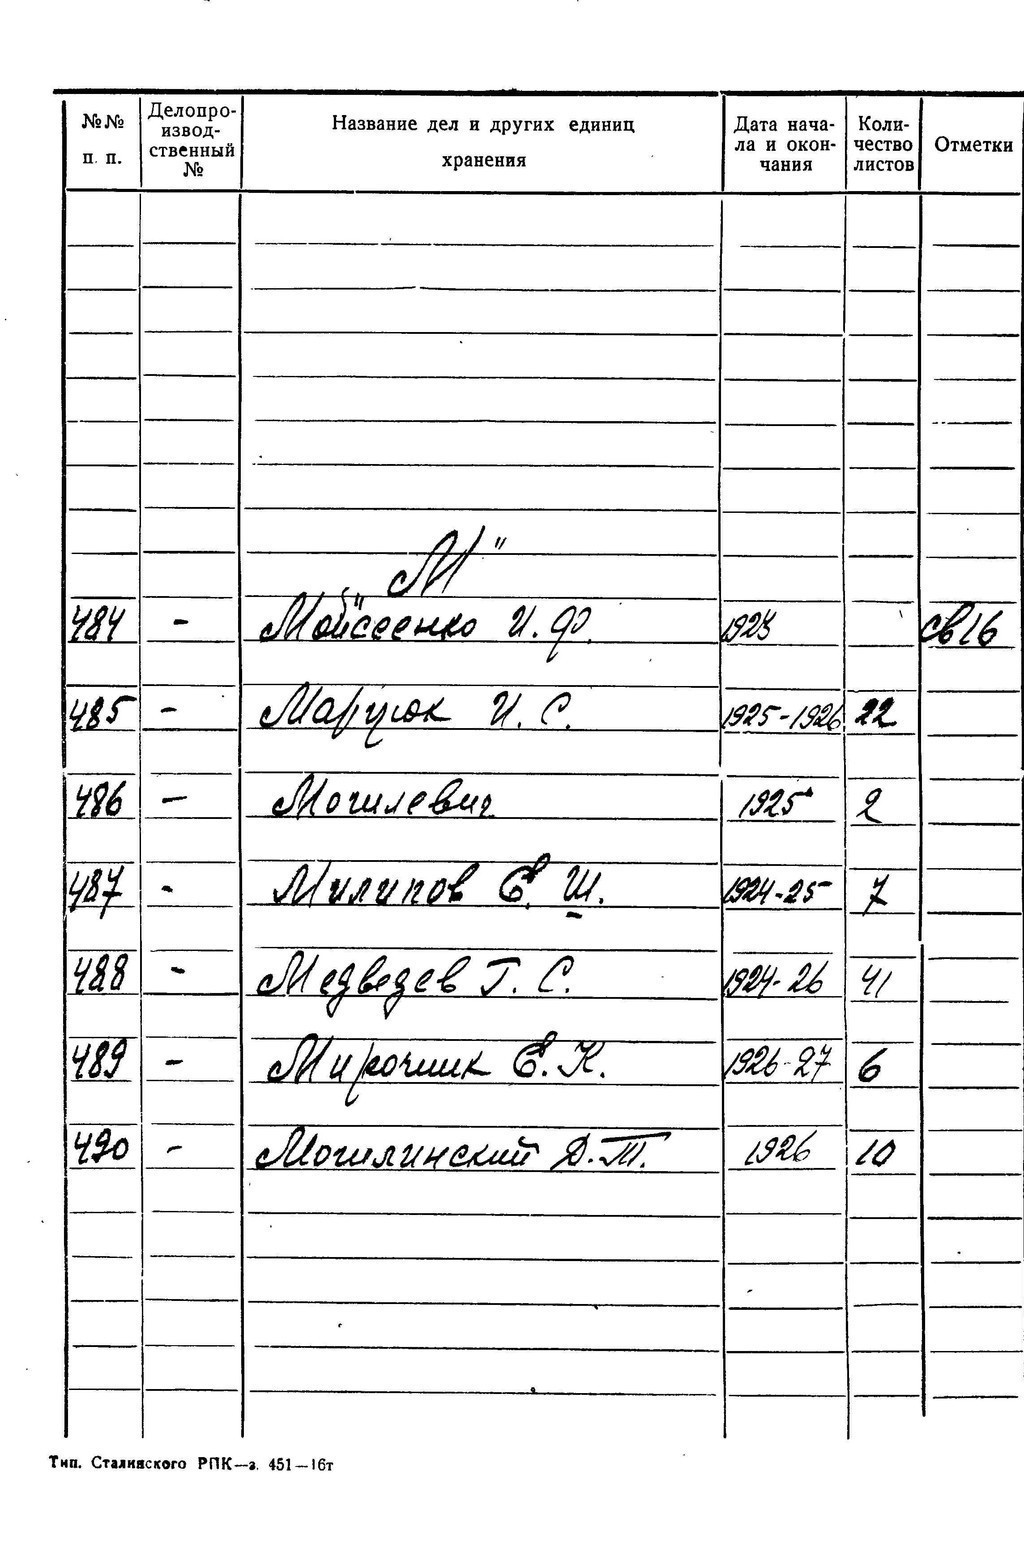 №№ п. п. Делопроизводственный № Название дел и других единиц хранения Дата начала и окончания Количество листов Отметки
„М"
484 - Мойсеенко И. Ф. 1923 св 16
485 - И. С. 1925-1926 22
486 - Могилевич 1925 2
487 - Милипов Е. Ш. 1924-25 7
488 - Медведев Г. С. 1924-26 41
489 - Мирочник Е. К. 1926-27 6
490 - Могилинский Д. Т. 1926 10
Тип. Сталинского РПК—з. 451—16т